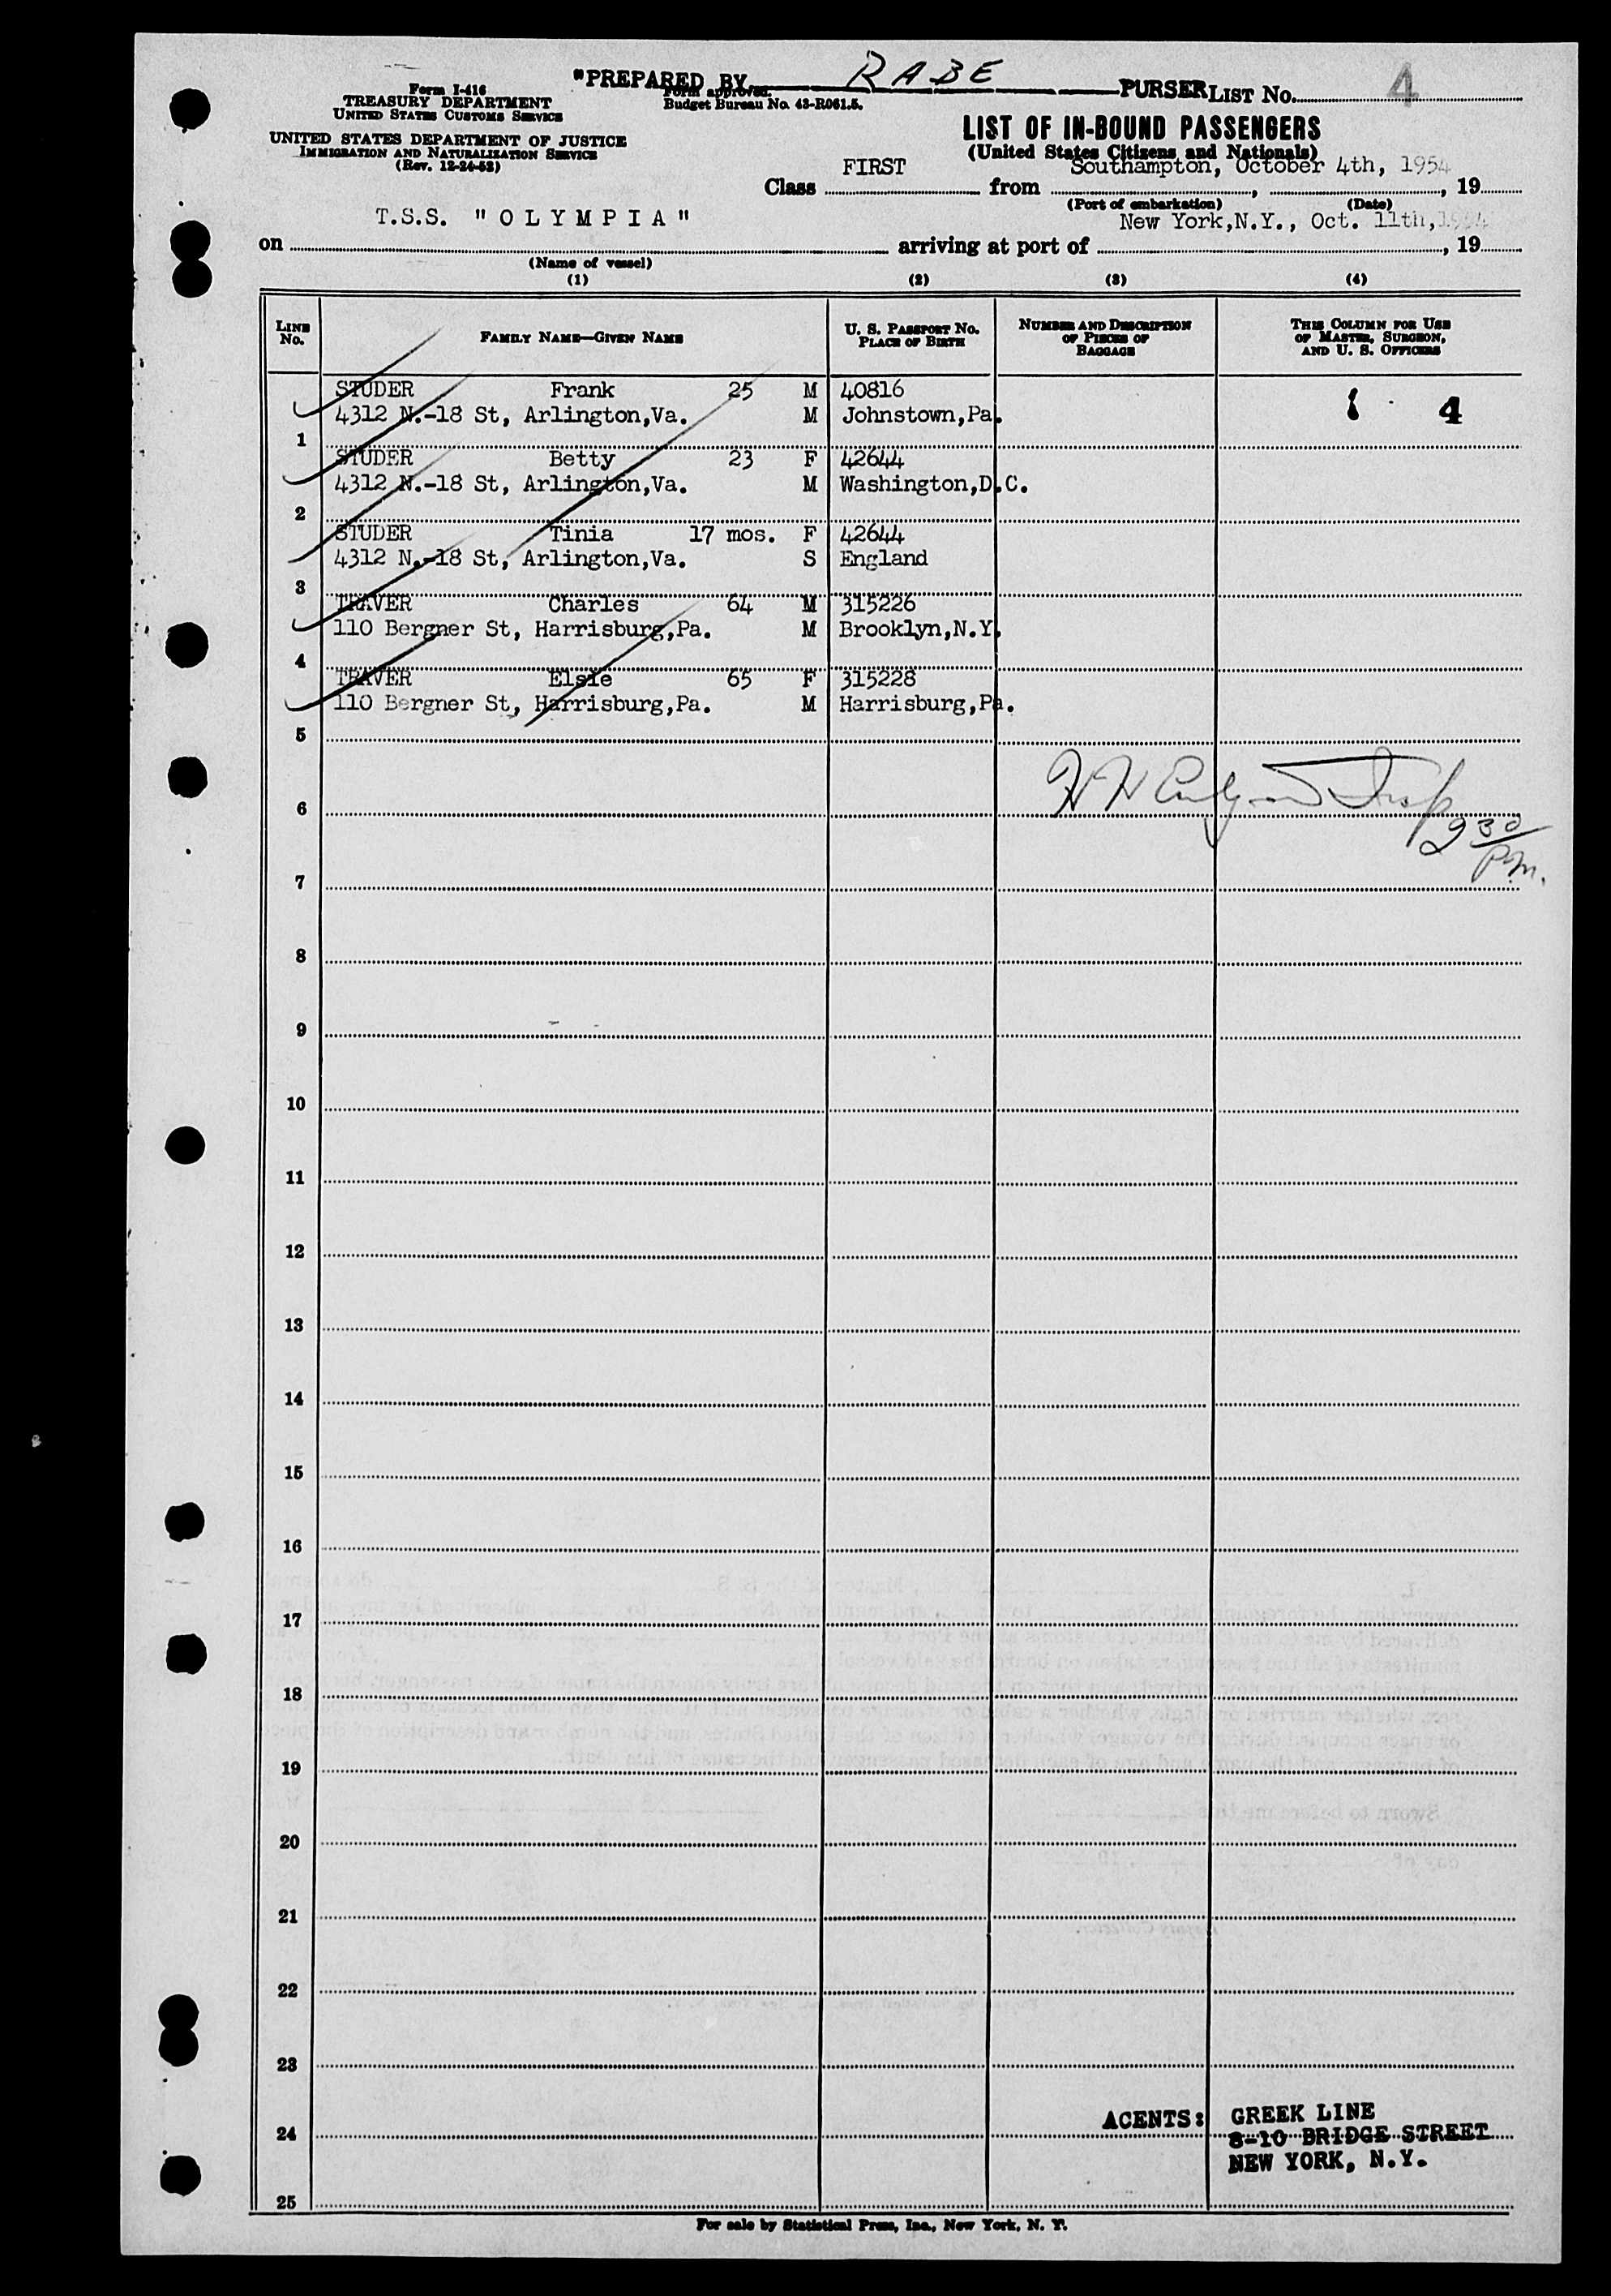 "PREPARED BY RABE PURSER LIST No. 4
Form I-416
TREASURY DEPARTMENT
UNITED STATES CUSTOMS SERVICE
Form approved.
Budget Bureau No. 43-R061.5.
UNITED STATES DEPARTMENT OF JUSTICE
IMMIGRATION AND NATURALIZATION SERVICE
(Rev. 12-24-52)
LIST OF IN-BOUND PASSENGERS
(United States Citizens and Nationals)
Class FIRST from Southampton, October 4th, 1954, 19
(Port of embarkation) (Date)
on T.S.S. "OLYMPIA" arriving at port of New York,N.Y., Oct. 11th,1954, 19
(Name of vessel)
(1) (2) (3) (4)
LINE No. FAMILY NAME—GIVEN NAME U. S. PASSPORT No. PLACE OF BIRTH NUMBER AND DESCRIPTION OF PIECES OF BAGGAGE THIS COLUMN FOR USE OF MASTER, SURGEON, AND U. S. OFFICERS
STUDER Frank 25 M 40816
4312 N.-18 St, Arlington,Va. M Johnstown,Pa. 4
1
STUDER Betty 23 F 42644
4312 N.-18 St, Arlington,Va. M Washington,D.C.
2
STUDER Tinia 17 mos. F 42644
4312 N.-18 St, Arlington,Va. S England
3
TRAVER Charles 64 M 315226
110 Bergner St, Harrisburg,Pa. M Brooklyn,N.Y.
4
TRAVER Elsie 65 F 315228
110 Bergner St, Harrisburg,Pa. M Harrisburg,Pa.
5
6
2 30
PM.
7
8
9
10
11
12
13
14
15
16
17
18
19
20
21
22
23
ACENTS: GREEK LINE
24 8-10 BRIDGE STREET
NEW YORK, N.Y.
25
For sale by Statistical Press, Inc., New York, N. Y.